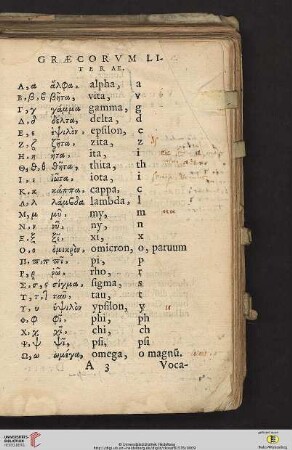 GRÆCORVM LI-
TERAE.
Α, α ἄλφα. alpha, a
Β, β, ϐ βῆτα, vita, v
Γ, γ γάμμα gamma, g
Δ, δ δέλτα, delta, d
Ε, ε ἐψιλὸν epsilon, e
Ζ, ζ ζῆτα, zita, z
Η, η ἦτα, ita, i
Θ, θ, ϑ θῆτα, thita, th
Ι, ι ἰῶτα, iota, i
Κ, κ κάππα, cappa, c
Λ, λ λάμβδα lambda, l
Μ, μ μῦ, my, m
Ν, ν νῦ, ny, n
Ξ, ξ ξῖ, xi, x
Ο, ο ὀμικρὸν, omicron, o, paruum
Π, π, ϖ πῖ, pi, p
Ρ, ρ ῥῶ, rho, r
Σ, σ, ς σίγμα, sigma, s
Τ, τ, ταυ, tau, t
Υ, υ ὐψιλὸν ypsilon, y
Φ, φ φῖ, phi, ph
Χ, χ χῖ, chi, ch
Ψ, ψ ψῖ, psi, ps
Ω, ω ὠμέγα, omega, o magnū.
A 3 Voca-
© Universitätsbibliothek Heidelberg